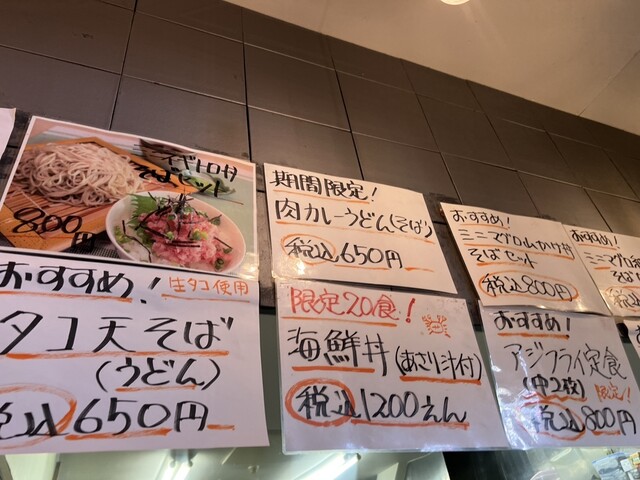 ネギトロ付
そばセット
800円
おすすめ! 生タコ使用
タコ天そば
(うどん)
税込650円
期間限定!
肉カレーうどん(そば)
税込650円
限定20食!
海鮮丼(あさり汁付)
税込1200えん
おすすめ!
ミニマグロ山かけ丼
そばセット
税込800円
おすすめ!
アジフライ定食
(中2枚) 限定!
税込800円
おすすめ!
ミニマグロ
そば
税込